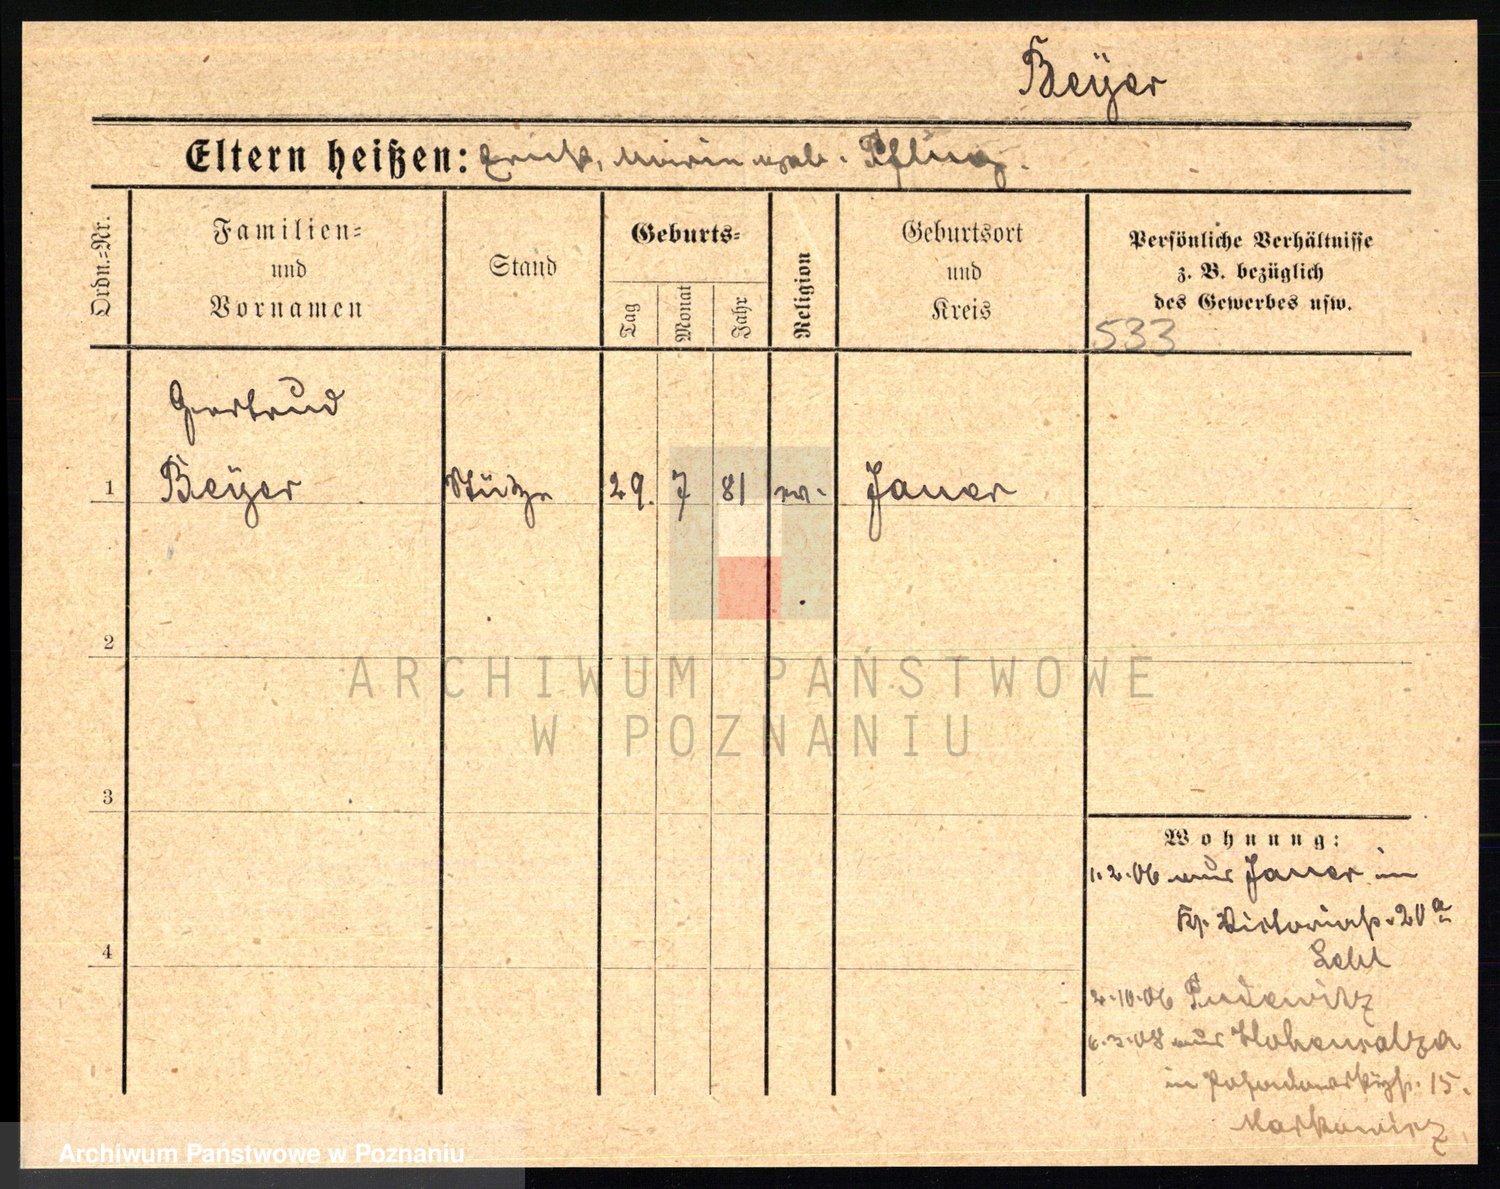 Beÿer
Eltern heißen: Erich, Marie geb. Pflug.
Ordn.-Nr.
Familien-
und
Vornamen
Stand
Geburts-
Tag
Monat
Jahr
Religion
Geburtsort
und
Kreis
Persönliche Verhältnisse
z. B. bezüglich
des Gewerbes usw.
533
Gertrud
1 Beÿer Stütze 29. 7 81 ev. Jauer
2
3
4
Wohnung:
1.2.06 aus Jauer in
Victoriastr. 20 a
2.10.06 Pudewitz
6.3.08 aus Hohensalza
in 15.
Markowicz
ARCHIWUM PAŃSTWOWE
W POZNANIU
Archiwum Państwowe w Poznaniu